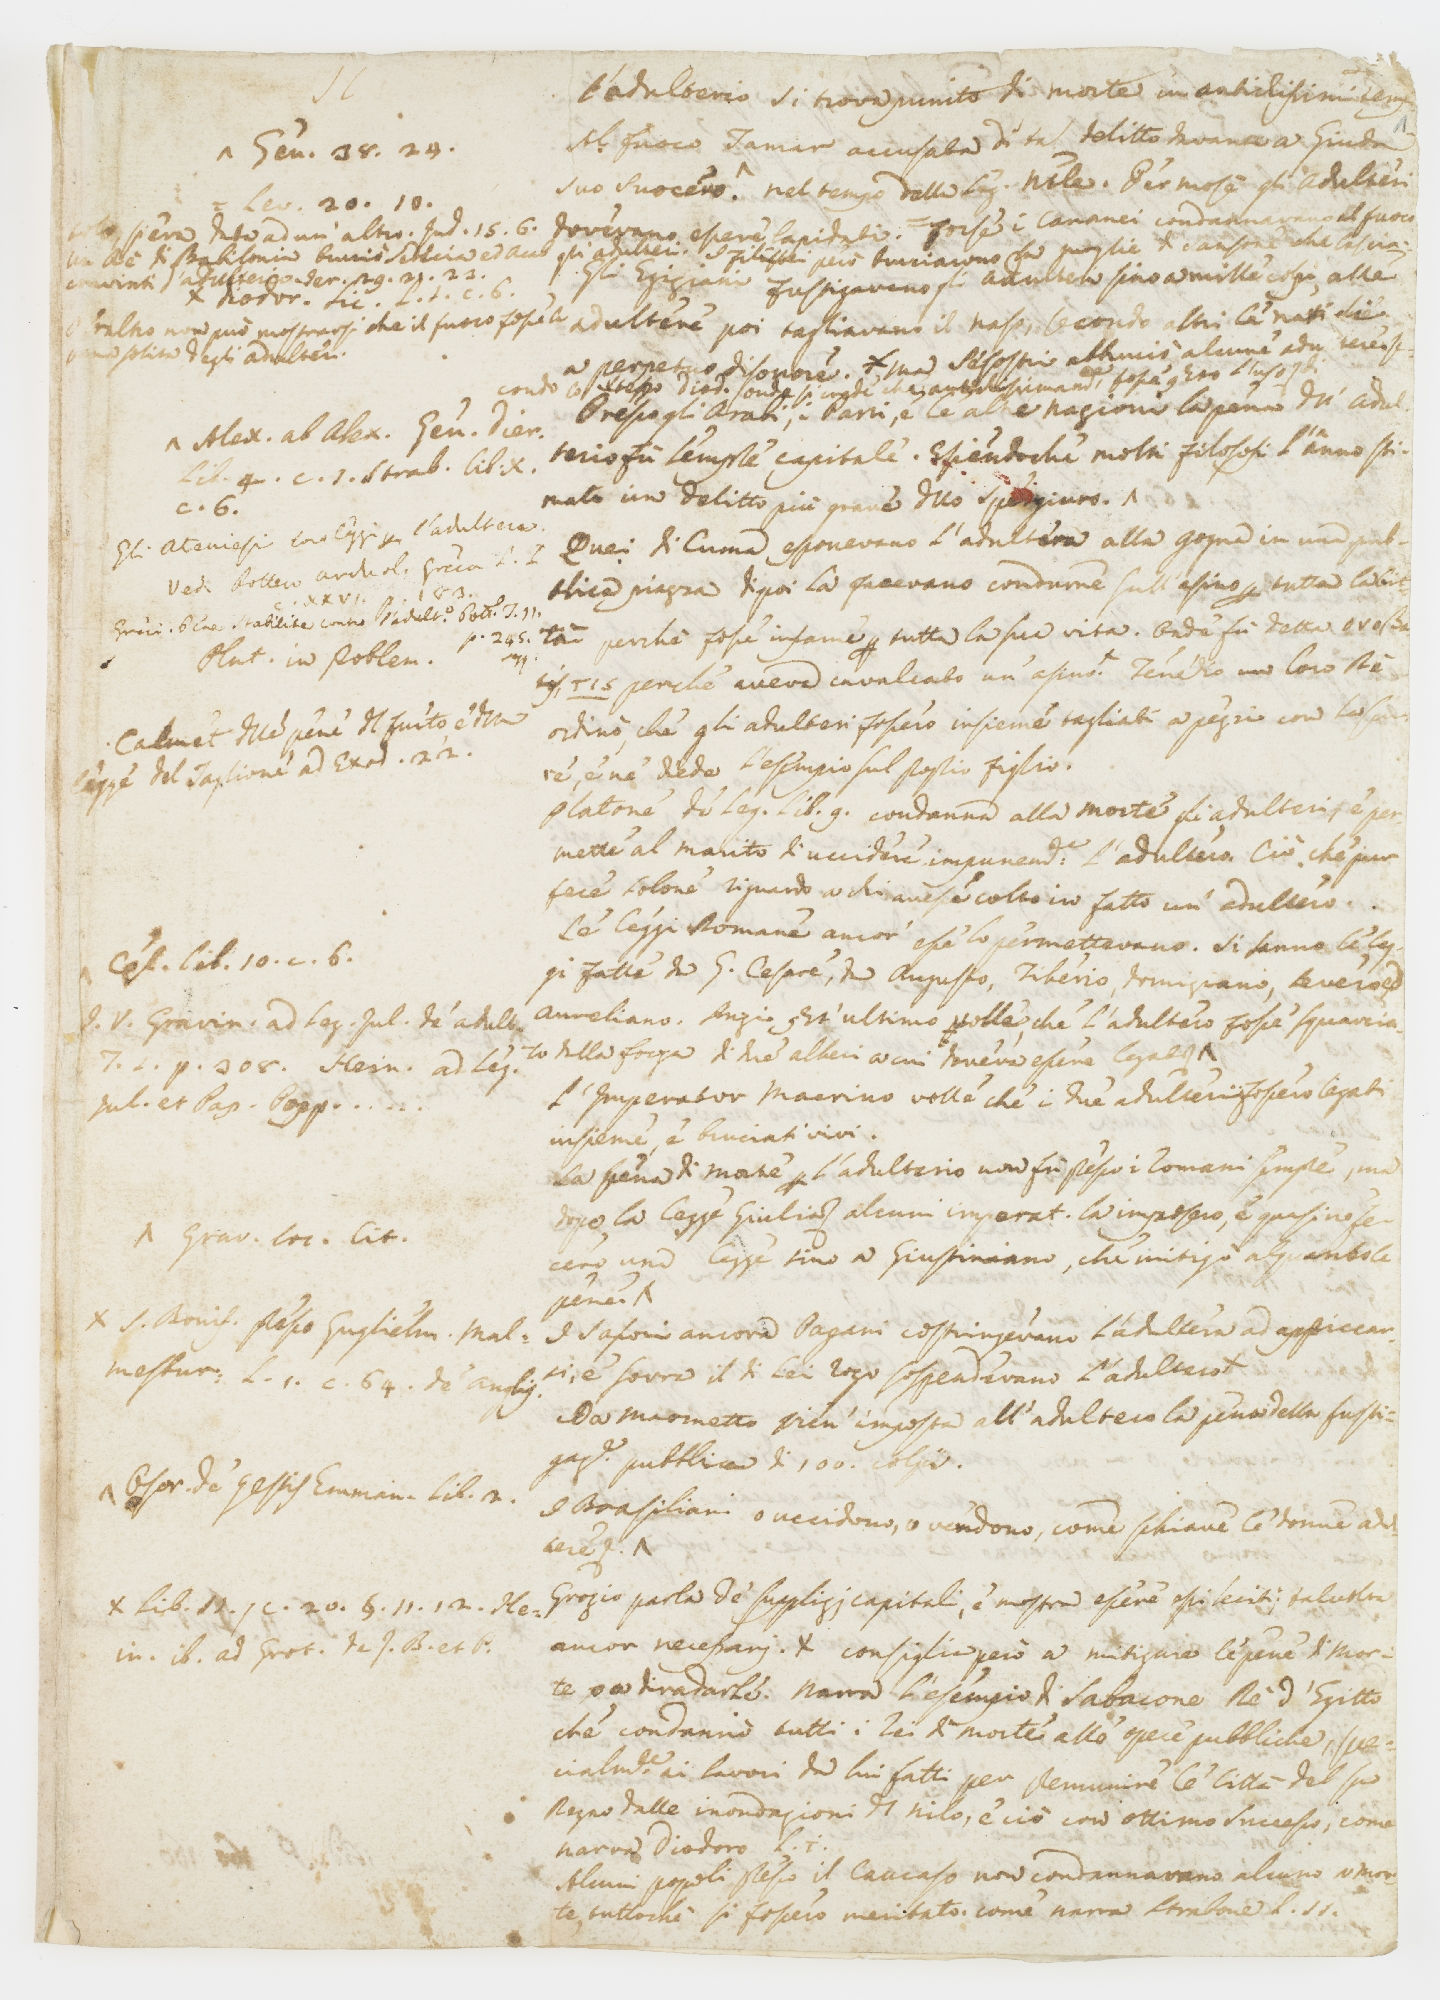 L'adulterio si trova punito di morte in antichissimi temp
Al fuoco Tamar accusata di tal delitto davanti a Giuda
suo suocero ^ nel tempo della Leg. nãle. Per mosè gli adulteri
dovevano essere lapidati. = Forse i Cananei condannavano al fuoco
gli adulteri. I Filistei però bruciarono la moglie di Sansone che lascia-
Gli Egiziani fustigavano gli adulteri sino a mille colpi, alle
adultere poi tagliavano il naso, secondo altri le nati
a perpetuo disonore. X ma Sesostri abbruciò alcune adultere se-
condo lo stesso Diod. onde si crede che fosse l'uso
Presso gli Arabi, i Parti, e le altre nazioni la pena dell' adul-
terio fù sempre capitale. Essendoche molti filosofi l'anno sti-
mato un delitto più grave dello spergiuro. ^
Quei di Cuma esponevano l'adultera alla gogna in una pub-
blica piazza di poi la facevano condurre sull'asino per tutta la cit-
tà perche fosse infame per tutta la sua vita. Onde fù detta
perche aveva cavalcato un asino.+ Tenedio un loro Rè
ordinò, che gli adulteri fossero insieme tagliati a pezzi con la scu-
re, e ne diede l'esempio sul proprio figlio.
Platone de Leg. Lib. 9. condanna alla morte gli adulteri, e per-
mette al marito di uccidere impunem.e l'adultero. Ciò che pur
fece Solone riguardo a chi avesse colto in fatto un' adultero.
Le leggi Romane ancor' esse lo permettevano. Si anno le leg-
gi fatte da G. Cesare, da Augusto, Tiberio, Domiziano, Severo, ed
Aureliano. Anzi quest'ultimo volle, che l'adultero fosse squarcia-
to dalla forza di due alberi a cui doveva essere legato ^
L'Imperator Macrino volle che i due adulteri fossero legati
insieme, e bruciati vivi.
La pena di morte per l'adulterio non fù presso i Romani sempre, ma
dopo la legge Giulia alcuni imperat. la imposero, e quasi ne fe-
cero una legge sino a Giustiniano, che mitigò alquanto le
pene. ^
I Sassoni ancora Pagani costringevano l'adultera ad appiccar-
si, e sovra il di lei rogo sospendevano l'adultero X
Da Maometto vien' imposta all' adultero la pena della fusti-
gaz.e pubblica di 100. colpi.
I Brasiliani o uccidono, o vendono, come schiave le donne adul-
tere. ^
Grozio parla de' supplizj capitali, e mostra essere essi leciti; talvolta
ancor necessarj. X consiglia però a mitigare le pene di mor-
te o a diradarle. Narra l'esempio di Sabacone Rè d'Egitto
che condannò tutti i rei di morte alle opere pubbliche, spe-
cialm.e ai lavori da lui fatti per premunire le Città del suo
Regno dalle inondazioni del Nilo, e ciò con ottimo successo, come
narra Diodoro L. i.
Alcuni popoli presso il Caucaso non condannavano alcuno a mor-
te, tuttochè si fossero meritato. come narra Strabone L. 11.
^ Gen. 38. 24.
= Lev. 20. 10.
s'era data ad un' altro. Jud. 15. 6.
un Rè di Babilonia bruciò Sedecia ed Acab
convinti d'adulterio. Jer. 29. 21. 22.
X Diodor. Sic. L. 1. c. 6.
non può mostrarsi che il fuoco fosse la
pena solita degli adulteri.
^ Alex. ab Alex. Gen. Dier.
Lib. 4. c. 1. Strab. lib. X.
c. 6.
Gli Ateniesi loro leggi per l'adultera
Vedi Potter archeol. Greca L. I
c. XXVI. 183.
Greci. Pene stabilite contro l'adult.o Pott. T. II.
p. 245.
Plut. in Problem.
Calmet delle pene del furto e della
legge del Taglione ad Exod. 22.
^ Cel. Lib. 10. c. 6.
J. V. Gravin. ad Leg. Jul. de adult.
T. 1. p. 308. Hein. ad Leg.
Jul. et Pap. Popp.....
^ Grav. loc. cit.
X S. Bonif. presso Guglielm. Mal-
mesbur: L. 1. c. 64. de Anglig.
^ Osor. de gestis Emman. Lib. 2.
X Lib. II. c. 20. §. 11. 12. He-
in. ib. ad Grot. de J. B. et P.